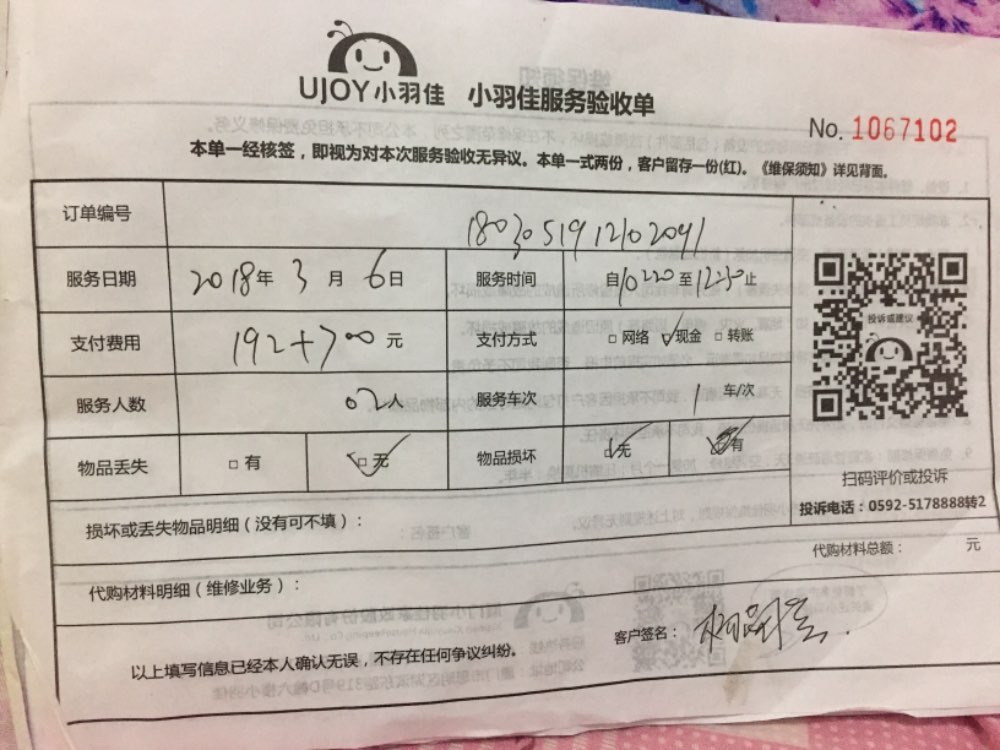 UJOY小羽佳 小羽佳服务验收单
No. 1067102
本单一经核签，即视为对本次服务验收无异议。本单一式两份，客户留存一份(红)。《维保须知》详见背面。
订单编号 1803051912102041
服务日期 2018年 3月 6日 服务时间 自10:20至12:30止
支付费用 192+700元 支付方式 □网络 ☑现金 □转账
服务人数 02人 服务车次 1 车/次
物品丢失 □有 ☑无 物品损坏 ☑无 有
投诉或建议
扫码评价或投诉
投诉电话：0592-5178888转2
损坏或丢失物品明细（没有可不填）：
代购材料总额： 元
代购材料明细（维修业务）：
客户签名：
以上填写信息已经本人确认无误，不存在任何争议纠纷。